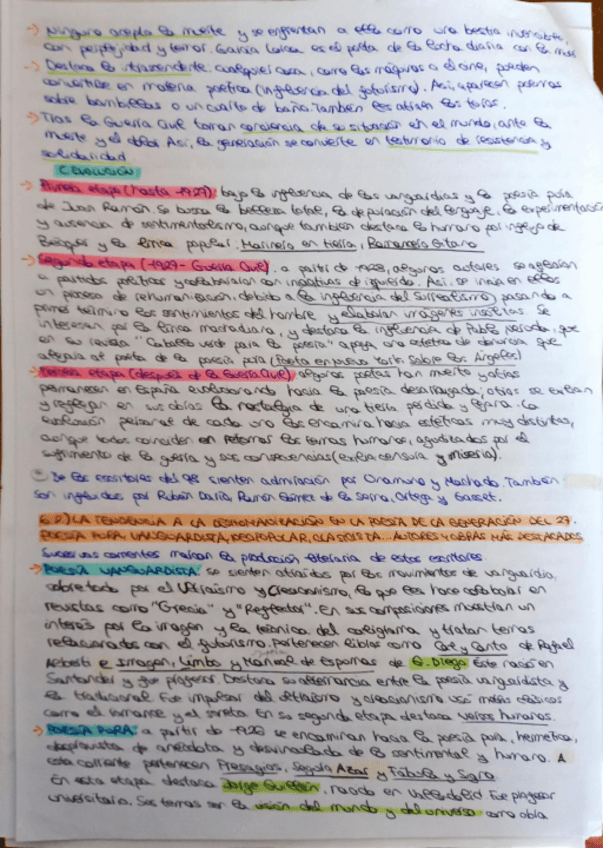 → Ninguno acepta la muerte y se enfrentan a ella como una bestia invencible,
con perplejidad y temor. García Lorca es el poeta de la lucha diaria con la
→ Destaca lo intrascendente. Cualquier cosa, como las máquinas o el cine, pueden
convertirse en materia poética (influencia del futurismo). Así, aparecen poemas
sobre bombillas o un cuarto de baño. También les atraen los toros.
→ Tras la Guerra Civil toman conciencia de su situación en el mundo, ante la
muerte y el dolor. Así, la generación se convierte en testimonio de resistencia y
solidaridad
C. EVOLUCIÓN
→ Primera etapa (hasta 1927): bajo la influencia de las vanguardias y la poesía pura
de Juan Ramón. Se busca la belleza total, la depuración del lenguaje, la experimentación
y ausencia de sentimentalismo, aunque también destaca lo humano por influjo de
Bécquer y la lírica popular: Marinero en tierra, Romancero Gitano
→ Segunda etapa (1927- Guerra Civil): a partir de 1928, algunos autores se afilian
a partidos políticos y colaboraron con iniciativas de izquierda. Así, se inicia en ellos
un proceso de rehumanización, debido a la influencia del Surrealismo, pasando a
primer término los sentimientos del hombre y elaboran imágenes insólitas. Se
interesan por la lírica machadiana, y destaca la influencia de Pablo Neruda, que
en su revista "Caballo verde para la poesía" apoya una estética de denuncia que
alejaría al poeta de la poesía pura (Poeta en Nueva York, Sobre los Ángeles)
→ Tercera etapa (después de la Guerra Civil) algunos poetas han muerto y otros
permanecen en España evolucionando hacia la poesía desarraigada; otros se exilian
y reflejan en sus obras la nostalgia de una tierra perdida y lejana. La
evolución personal de cada uno los encamina hacia estéticas muy distintas,
aunque todos coinciden en retomar los temas humanos, agudizados por el
sufrimiento de la guerra y sus consecuencias (exilio censura y miseria).
De los escritores del 98 sienten admiración por Unamuno y Machado. También
son influidos por Rubén Darío, Ramón Gómez de la Serna, Ortega y Gasset.
6.2) LA TENDENCIA A LA DESHUMANIZACIÓN EN LA POESÍA DE LA GENERACIÓN DEL 27.
POESÍA PURA, VANGUARDISTA, NEOPOPULAR, CLASICISTA... AUTORES Y OBRAS MÁS DESTACADOS
Sucesivas corrientes marcan la producción literaria de estos escritores.
→ POESÍA VANGUARDISTA: se sienten atraídos por los movimientos de vanguardia,
sobre todo por el Ultraísmo y Creacionismo, lo que les hace colaborar en
revistas como "Grecia" y "Reflector". En sus composiciones muestran un
interés por la imagen y la técnica del caligrama y tratar temas
relacionados con el futurismo. Pertenecen libros como Cal y Canto de Rafael
Alberti e Imagen, Limbo y Manual de Espumas de G. Diego Este nació en
Santander y fue profesor. Destaca su alternancia entre la poesía vanguardista y
la tradicional. Fue impulsor del ultraísmo y creacionismo usó metros clásicos
como el romance y el soneto. En su segunda etapa destaca Versos humanos.
→ POESÍA PURA: a partir de 1926 se encaminan hacia la poesía pura, hermética,
desprovista de anécdota y desvinculada de lo sentimental y humano. A
esta corriente pertenecen Presagios, Seguro Azar y Fábula y Signo
En esta etapa destaca Jorge Guillén, nacido en Valladolid. Fue profesor
universitario. Sus temas son la visión del mundo y del universo como obra